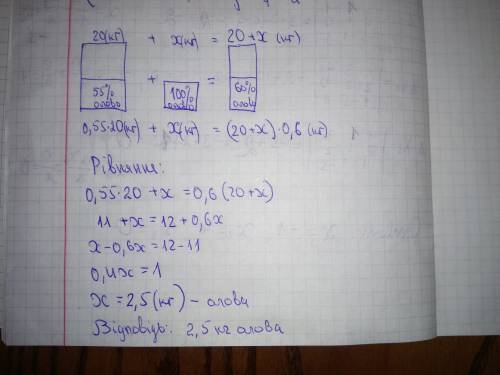 20(кг) + x(кг) = 20+x (кг)
55% олово + 100% олово = 60% олово
0,55·20(кг) + x(кг) = (20+x)·0,6 (кг)
Рівняння:
0,55·20 +x =0,6 (20+x)
11 +x = 12 + 0,6x
x-0,6x = 12-11
0,4x = 1
x = 2,5 (кг) - олова
Відповідь: 2,5 кг олова